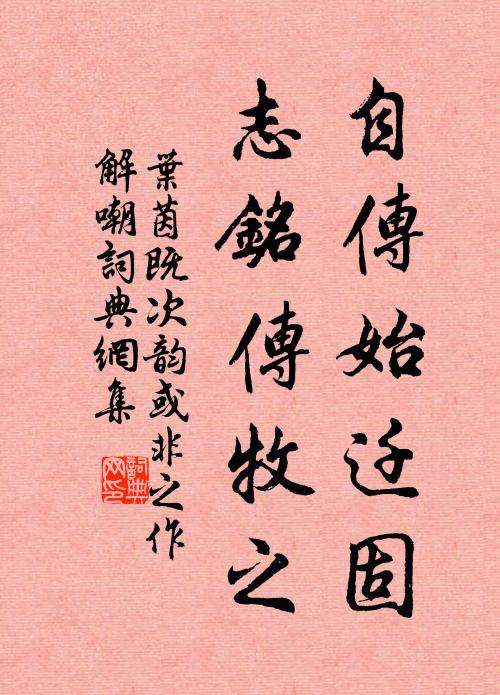 自傳始迁固
志銘傳牧之
葉茵既次韵或非之作
解嘲詞典網集
詞典網印